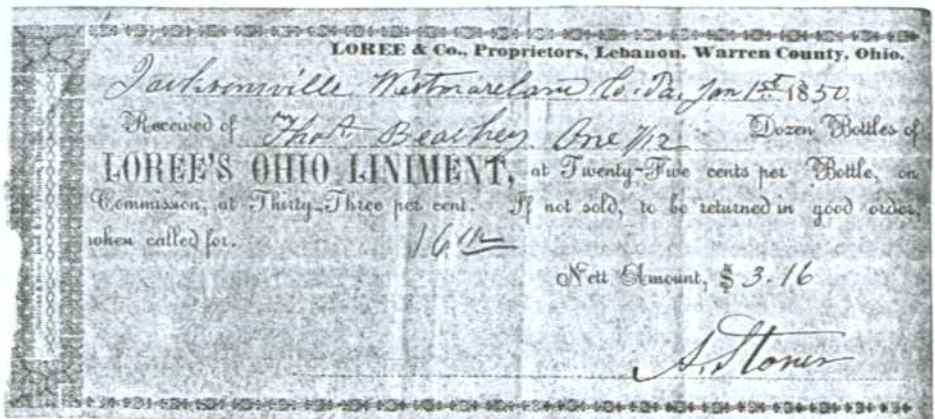 LOREE & Co., Proprietors, Lebanon, Warren County, Ohio.
Jacksonsville Westmoreland Co. Pa. Jan 1st 1850.
Received of Thos. Beachey One 7/12 Dozen Bottles of
LOREE'S OHIO LINIMENT, at Twenty-Five cents per Bottle, on
Commission, at Thirty-Three per cent. If not sold, to be returned in good order,
when called for.
Nett Amount, $ 3.16
A. Stoner